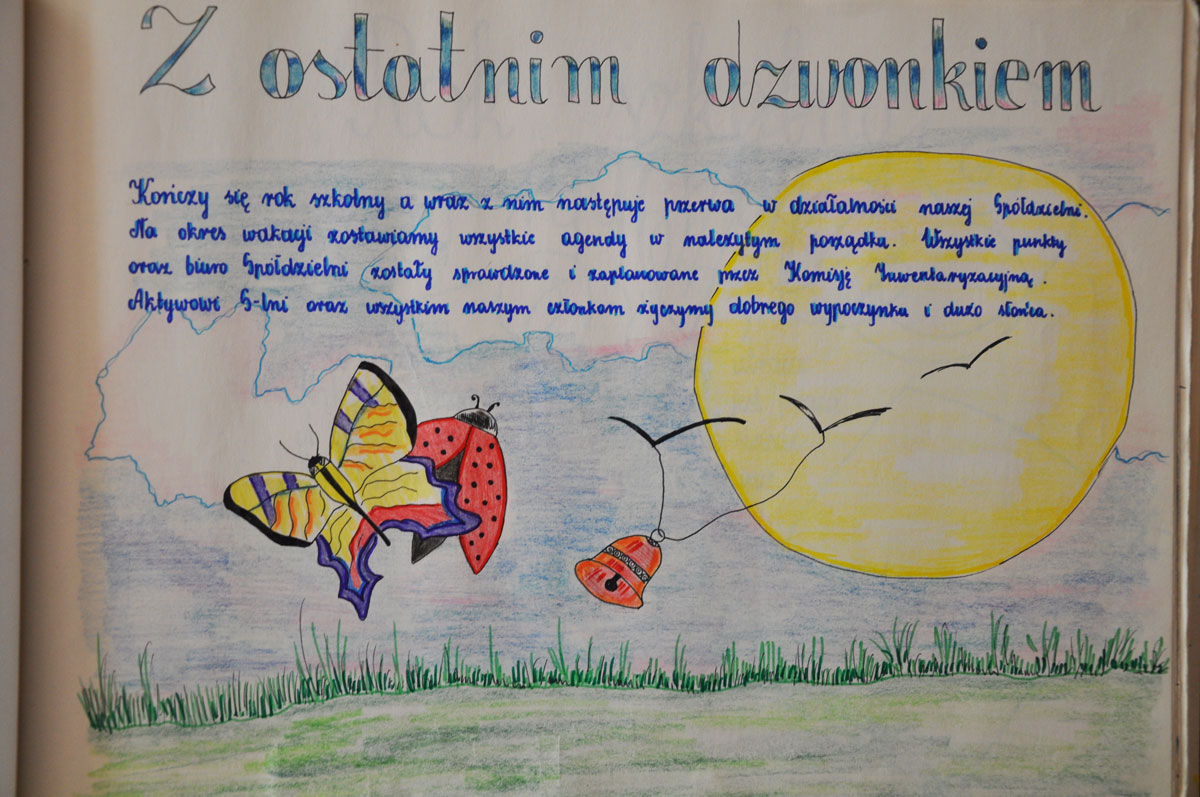 Z ostatnim dzwonkiem
Kończy się rok szkolny a wraz z nim następuje przerwa w działalności naszej Spółdzielni.
Na okres wakacji zostawiamy wszystkie agendy w należytym porządku. Wszystkie punkty
oraz biuro Spółdzielni zostały sprawdzone i zaplanowane przez Komisję Inwentaryzacyjną.
Aktywowi S-lni oraz wszystkim naszym członkom życzymy dobrego wypoczynku i dużo słońca.